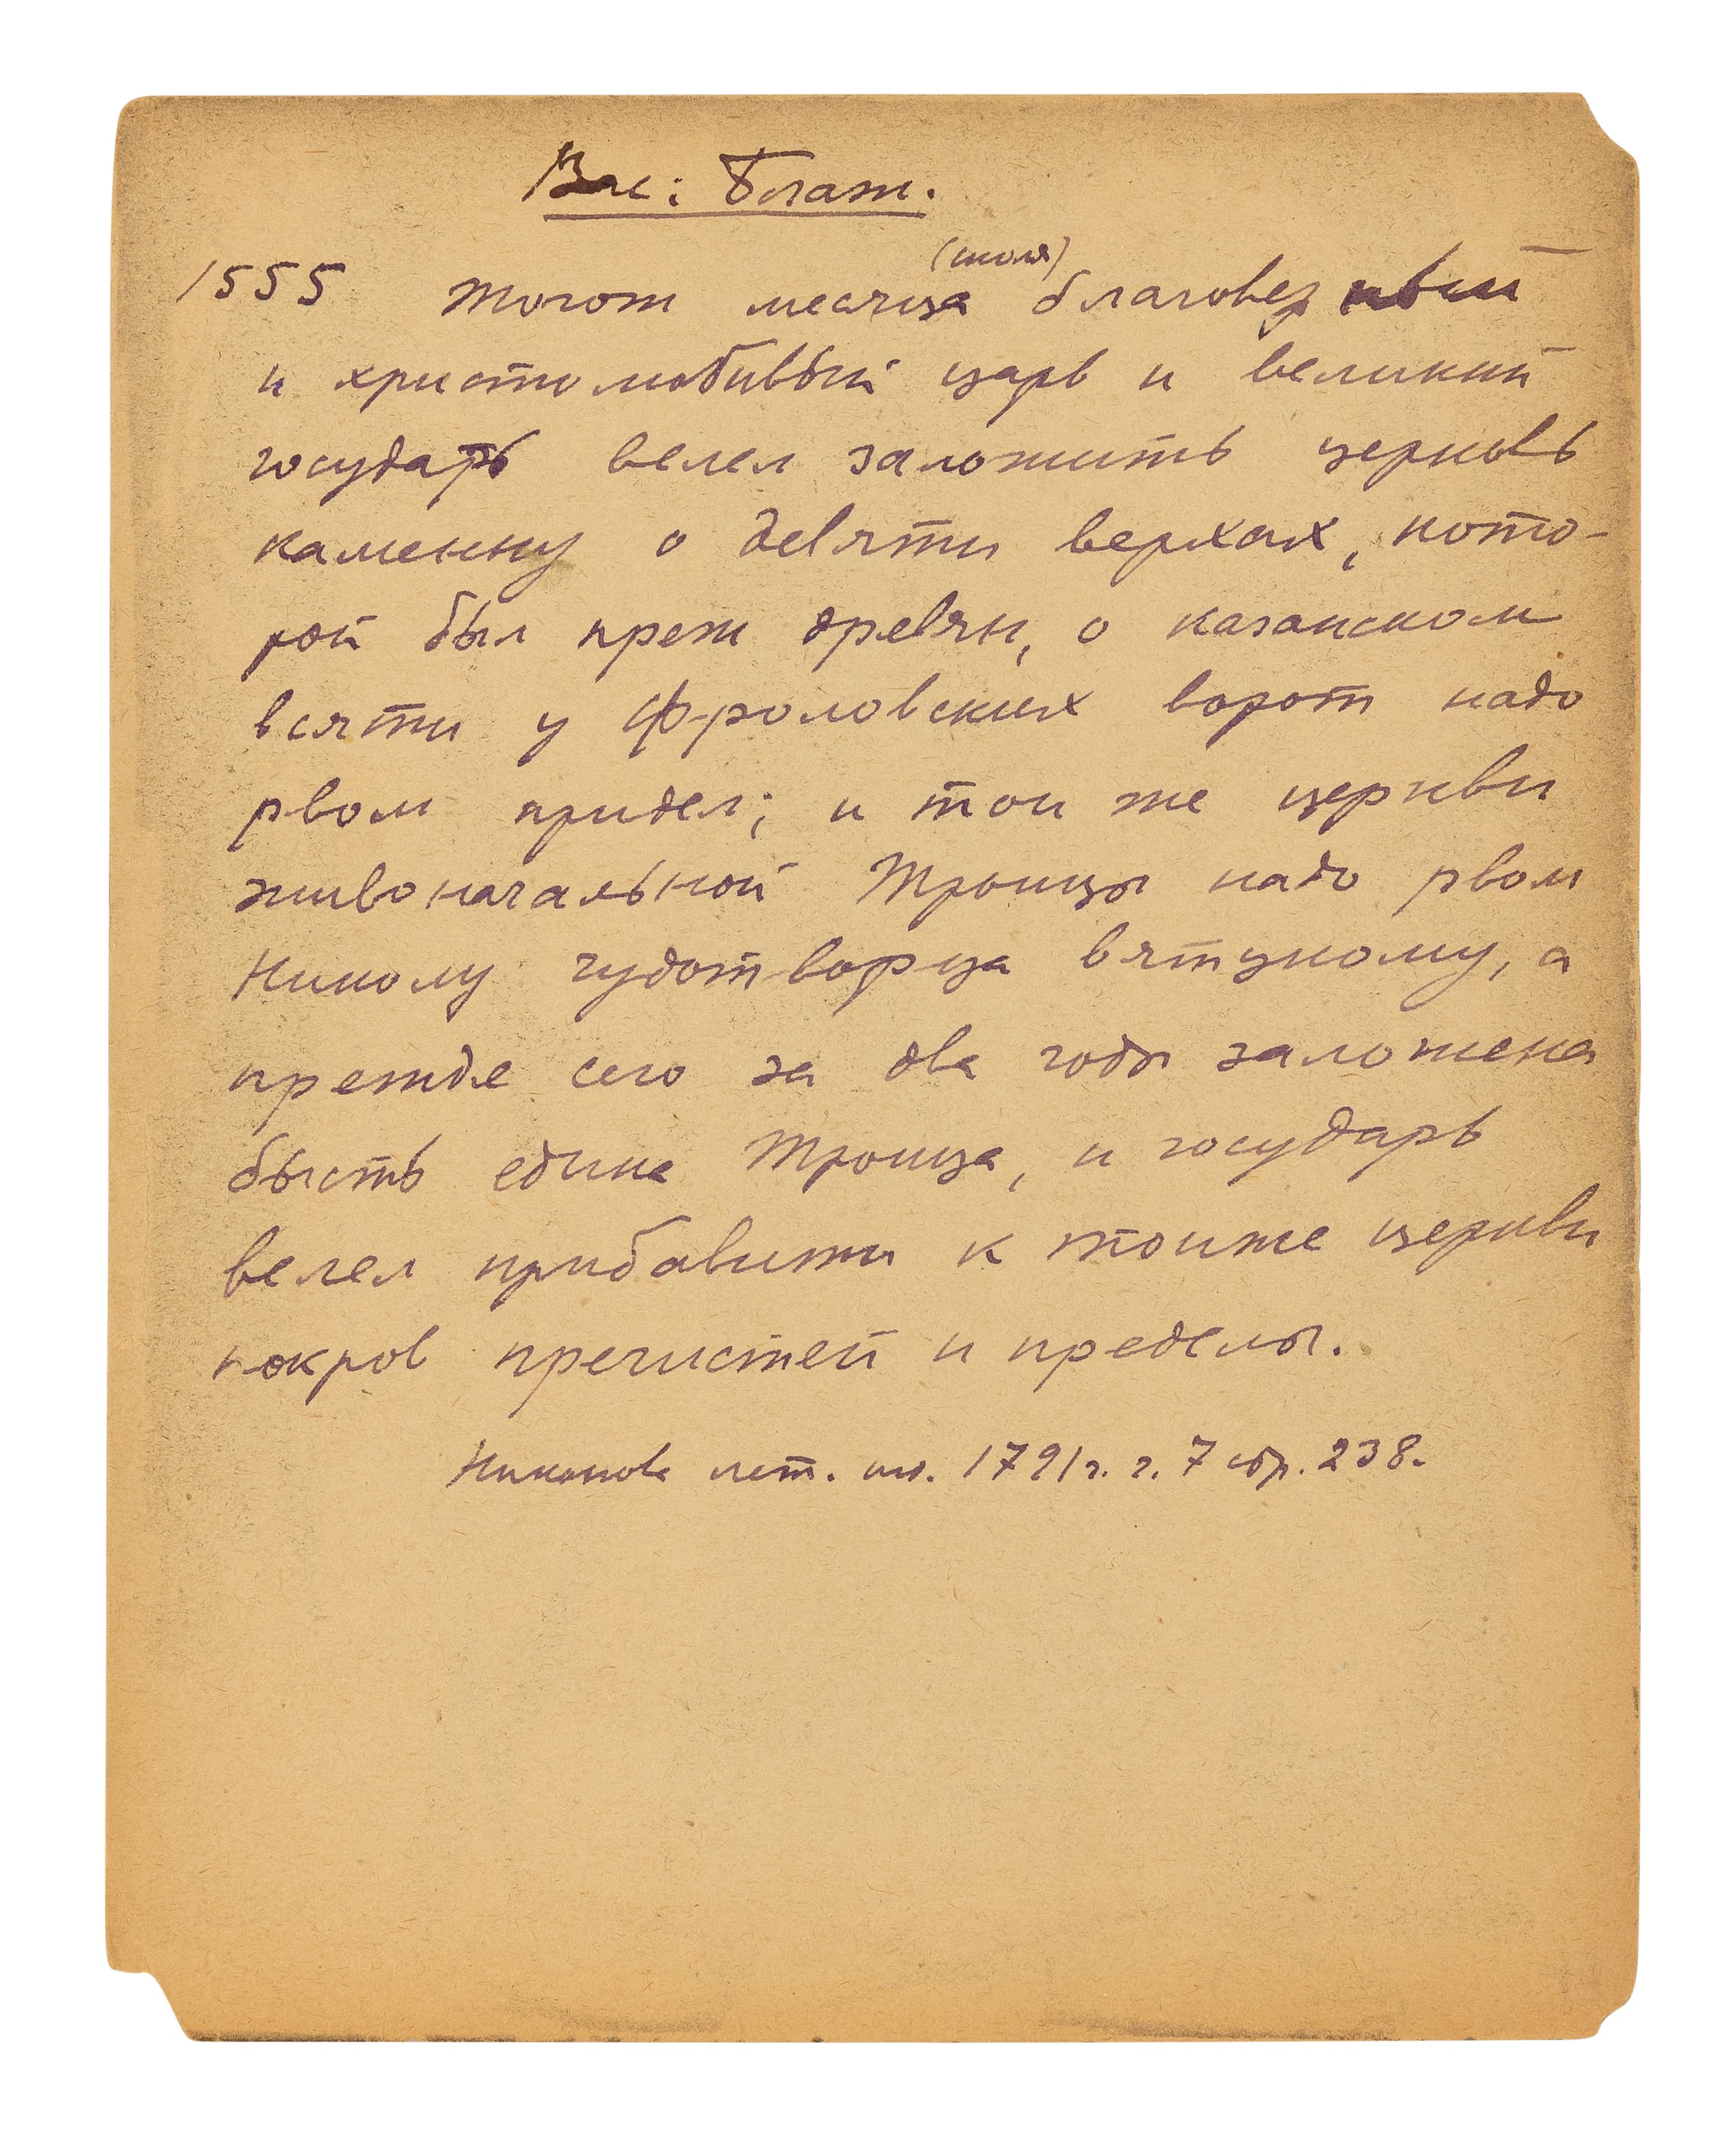 Вас: Блаж.
(июля)
1555 тогож месяца благоверный
и христолюбивый царь и великий
государь велел заложить церковь
каменну о девяти верхах, кото-
рой был преж древян, о казанском
всяти у Фроловских ворот надо
рвом придел; и тои же церкви
живоначальной Троицы надо рвом
Николу чудотворца вятцкому, а
прежде сего за два годы заложена
бысть едина Троица, и государь
велел прибавити к тоиже церкви
покров пречистей и пределы.
Никонов. лет. 1791 г. ч. 7 стр. 238.